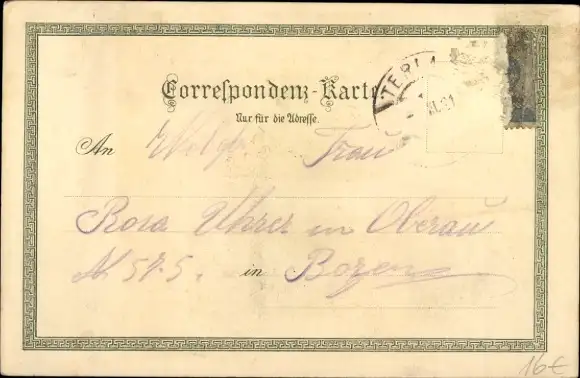 Correspondenz-Karte
Nur für die Adresse.
TERLA
XI.01
An Wolgb. Frau
Rosa Uhrer in Oberau
N 545. in Bozen
16€